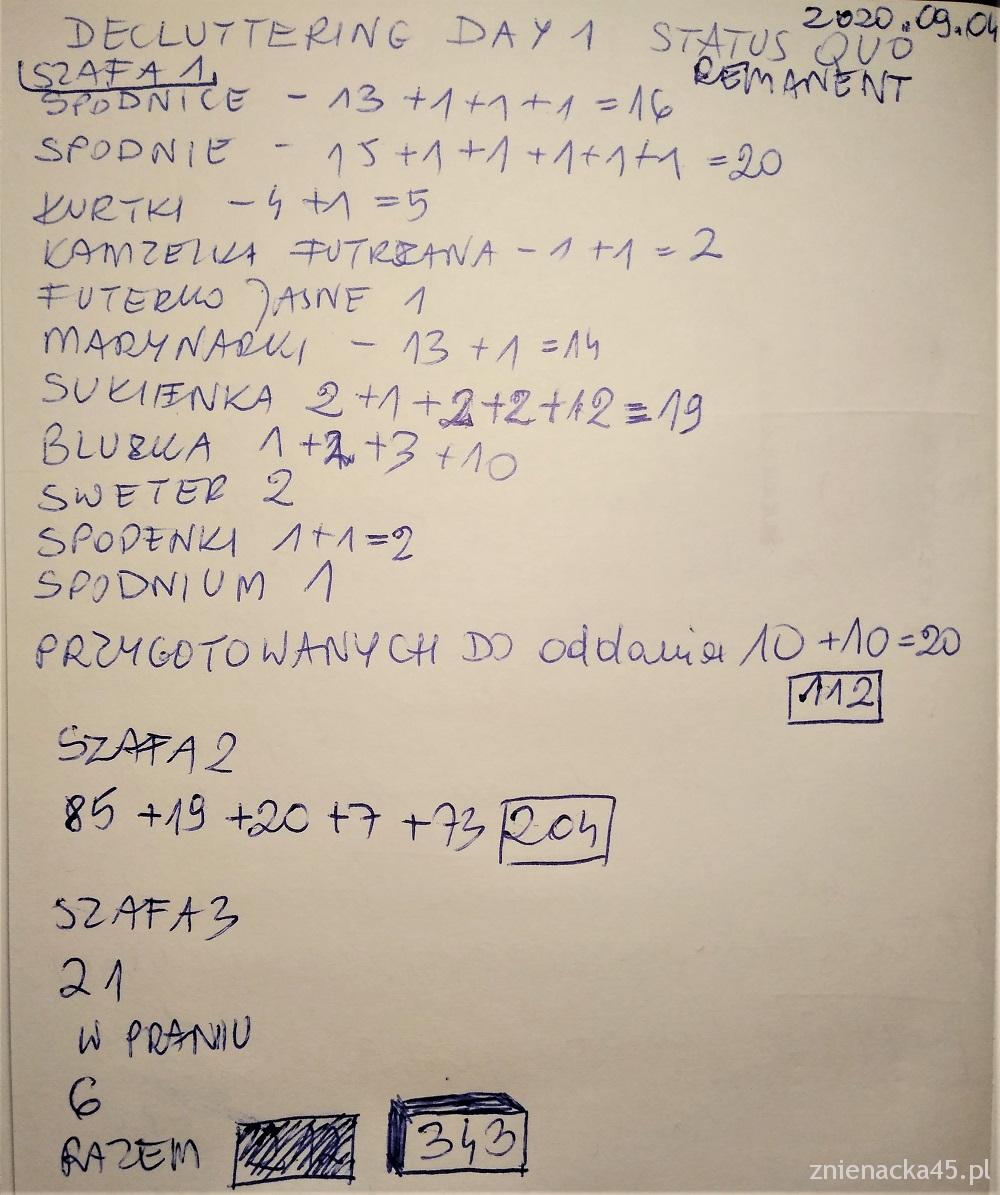 2020.09.04
DECLUTTERING DAY 1 STATUS QUO
REMANENT
SZAFA 1
SPODNICE - 13 +1+1+1 =16
SPODNIE - 15+1+1+1+1+1 =20
KURTKI - 4 +1 =5
KAMZELKA FUTRZANA - 1 +1 = 2
FUTERKO JASNE 1
MARYNARKI - 13 +1 =14
SUKIENKA 2+1+2+2+12=19
BLUZKA 1+2+3+10
SWETER 2
SPODENKI 1+1=2
SPODNIUM 1
PRZYGOTOWANYCH DO oddania 10 +10=20
112
SZAFA 2
85 +19 +20 +7 +73 204
SZAFA 3
21
W PRANIU
6
RAZEM 343
znienacka45.pl